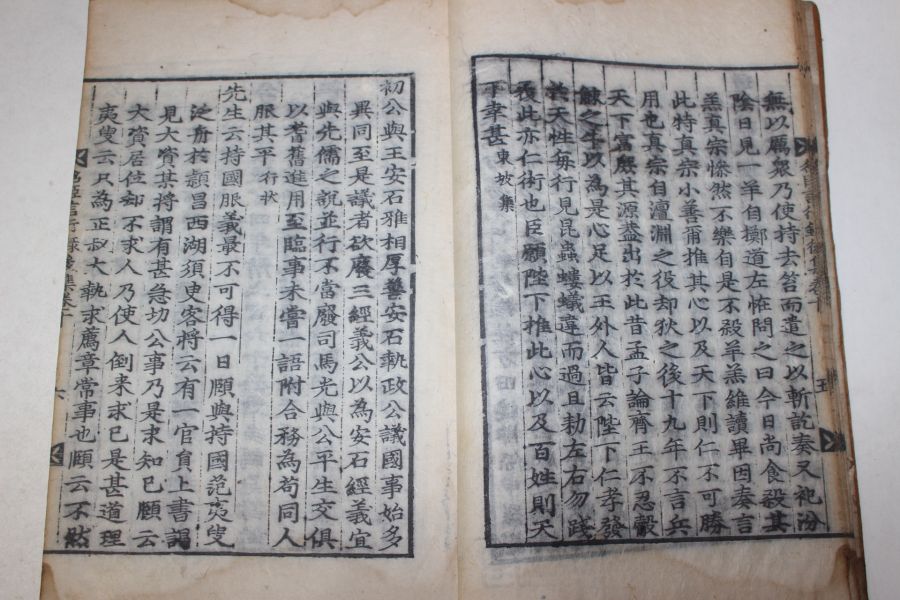 無以厲衆乃使持去笞而遣之以斬訖奏又祀汾
陰日見一羊自擲道左恠問之曰今日尚食殺其
羔真宗慘然不樂自是不殺羊羔維讀畢因奏言
此特真宗小善爾推其心以及天下則仁不可勝
用也真宗自澶淵之役却狄之後十九年不言兵
天下富殷其源蓋出於此昔孟子論齊王不忍觳
觫之牛以為是心足以王外人皆云陛下仁孝發
於天性每行見昆蟲螻蟻違而過且勅左右勿踐
履此亦仁術也臣願陛下推此心以及百姓則天
下幸甚東坡集
初公與王安石雅相厚善安石執政公議國事始多
異同至是議者欲廢三經義公以為安石經義宜
與先儒之說並行不當廢司馬光與公平生交俱
以耆舊進用至臨事未嘗一語附合務為苟同人
服其平行狀
先生云持國服義最不可得一日頤與持國范夷叟
泛舟於潁昌西湖須臾客將云有一官員上書謁
見大資某將謂有甚急切公事乃是求知己頤云
大資居位却不求人乃使人倒来求己是甚道理
夷叟云只為正叔大執求薦章常事也頤云不然